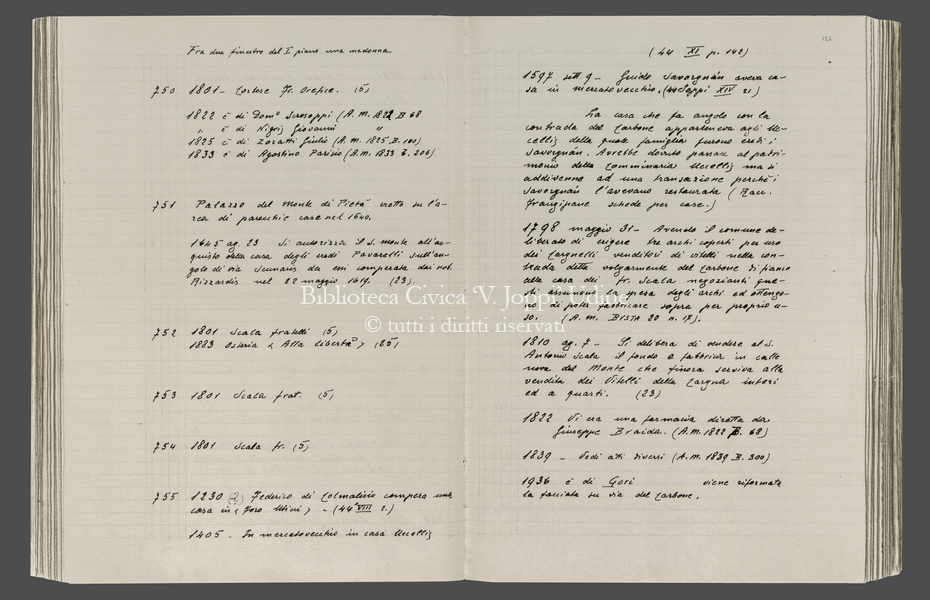 Fra due finestre del I° piano una madonna.
750 1801 - Cortese Fr. Orefice. (5)
1822 è di Dom° Serosoppi (A.M. 1822 B 68
" è di Nigris Giovanni "
1825 è di Zoratti Giulio (A.M. 1825 B. 100)
1833 è di Agostino Parisio (A.M. 1833 B. 206)
751 Palazzo del Monte di Pietà eretto su l'a-
rea di parecchie case nel 1640.
1645 ag. 23 Si autorizza il S. Monte all'ac-
quisto della casa degli eredi Pavarelli sull'an-
golo di via Scunaris da essi comperata dai nob.
Rizzardis nel 22 maggio 1619. (23).
752 1801 Scala fratelli (5)
1883 Osteria « Alla libertà » (25)
753 1801 Scala frat. (5)
754 1801 Scala fr. (5)
755 1230 (?) Federico di Colmalisio compera una
casa in « Foro Utini » - (44 VIII 2.)
1405 - In mercatovecchio in casa Uccellis
(44 XI p. 142)
1597 sett 9 - Guido Savorgnan aveva ca-
sa in mercatovecchio. (Joppi XIV 21)
La casa che fa angolo con la
contrada del Carbone apparteneva agli Uc-
cellis della quale famiglia furono eredi i
Savorgnan. Avrebbe dovuto passare al patri-
monio della Commissaria Uccellis ma si
addivenne ad una transazione perché i
Savorgnan l'avevano restaurata (Racc.
Frangipane schede per case.)
1798 maggio 31 - Avendo il comune de-
liberato di erigere tre archi coperti per uso
dei Cargnelli venditori di vitelli nella con-
trada detta volgarmente del Carbone di fianco
alla casa dei fr. Scala negozianti que-
sti assumono la spesa degli archi ed ottengo-
no di poter fabbricare sopra per proprio u-
so. (A.M. Busta 20 n. 17).
1810 ag. 7 - Si delibera di vendere al S.
Antonio Scala il fondo e fabbrica in calle
nova del Monte che finora serviva alla
vendita dei Vitelli della Cargna interi
ed a quarti. (23)
1822 Vi era una farmacia diretta da
Giuseppe Braida. (A.M. 1822 B. 68)
1839 - Vedi atti diversi (A.M. 1839 B. 300)
1936 è di Gori viene riformata
la facciata su via del Carbone.
Biblioteca Civica 'V. Joppi' Udine
© tutti i diritti riservati